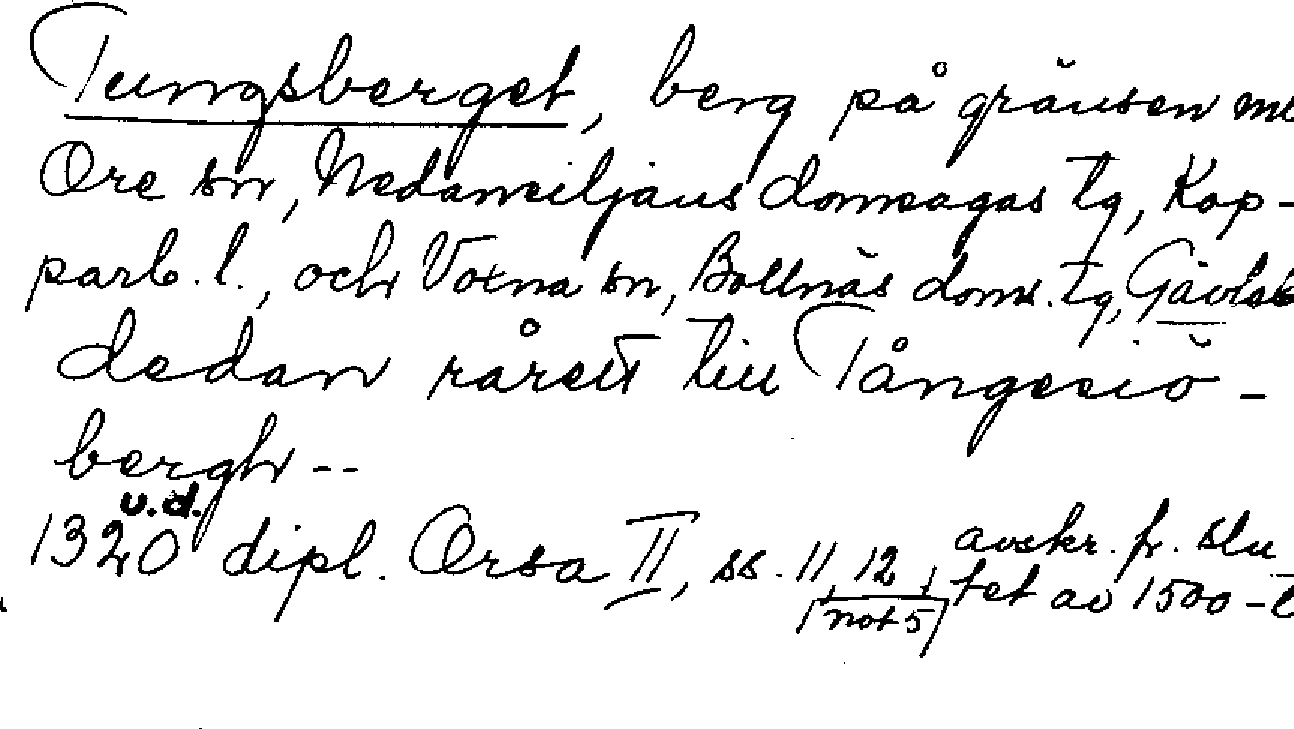 Tungsberget, berg på gränsen me
Ore sn, Nedansiljans domsagas tg, Kop-
parb. l., och Voxna sn, Bollnäs doms. tg, Gävleb
dedan rårett till Tångesiö-
bergh --
u.d.
1320 dipl. Orsa II, ss. 11, 12, avskr. fr. slu
(not 5) tet av 1500-t